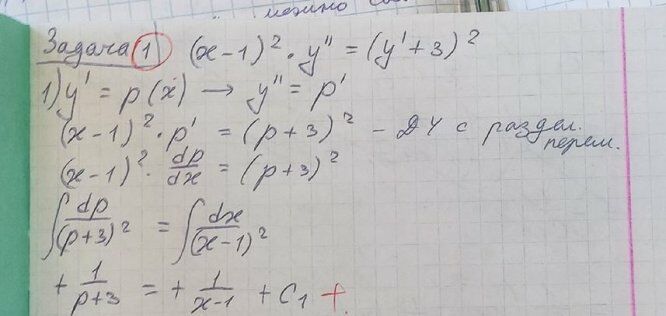 Задача 1 (x-1)² · y'' = (y'+3)²
1) y' = p(x) → y'' = p'
(x-1)² · p' = (p+3)² - ДУ с раздел. перем.
(x-1)² · dp/dx = (p+3)²
∫ dp/(p+3)² = ∫ dx/(x-1)²
+ 1/(p+3) = + 1/(x-1) + C₁ +